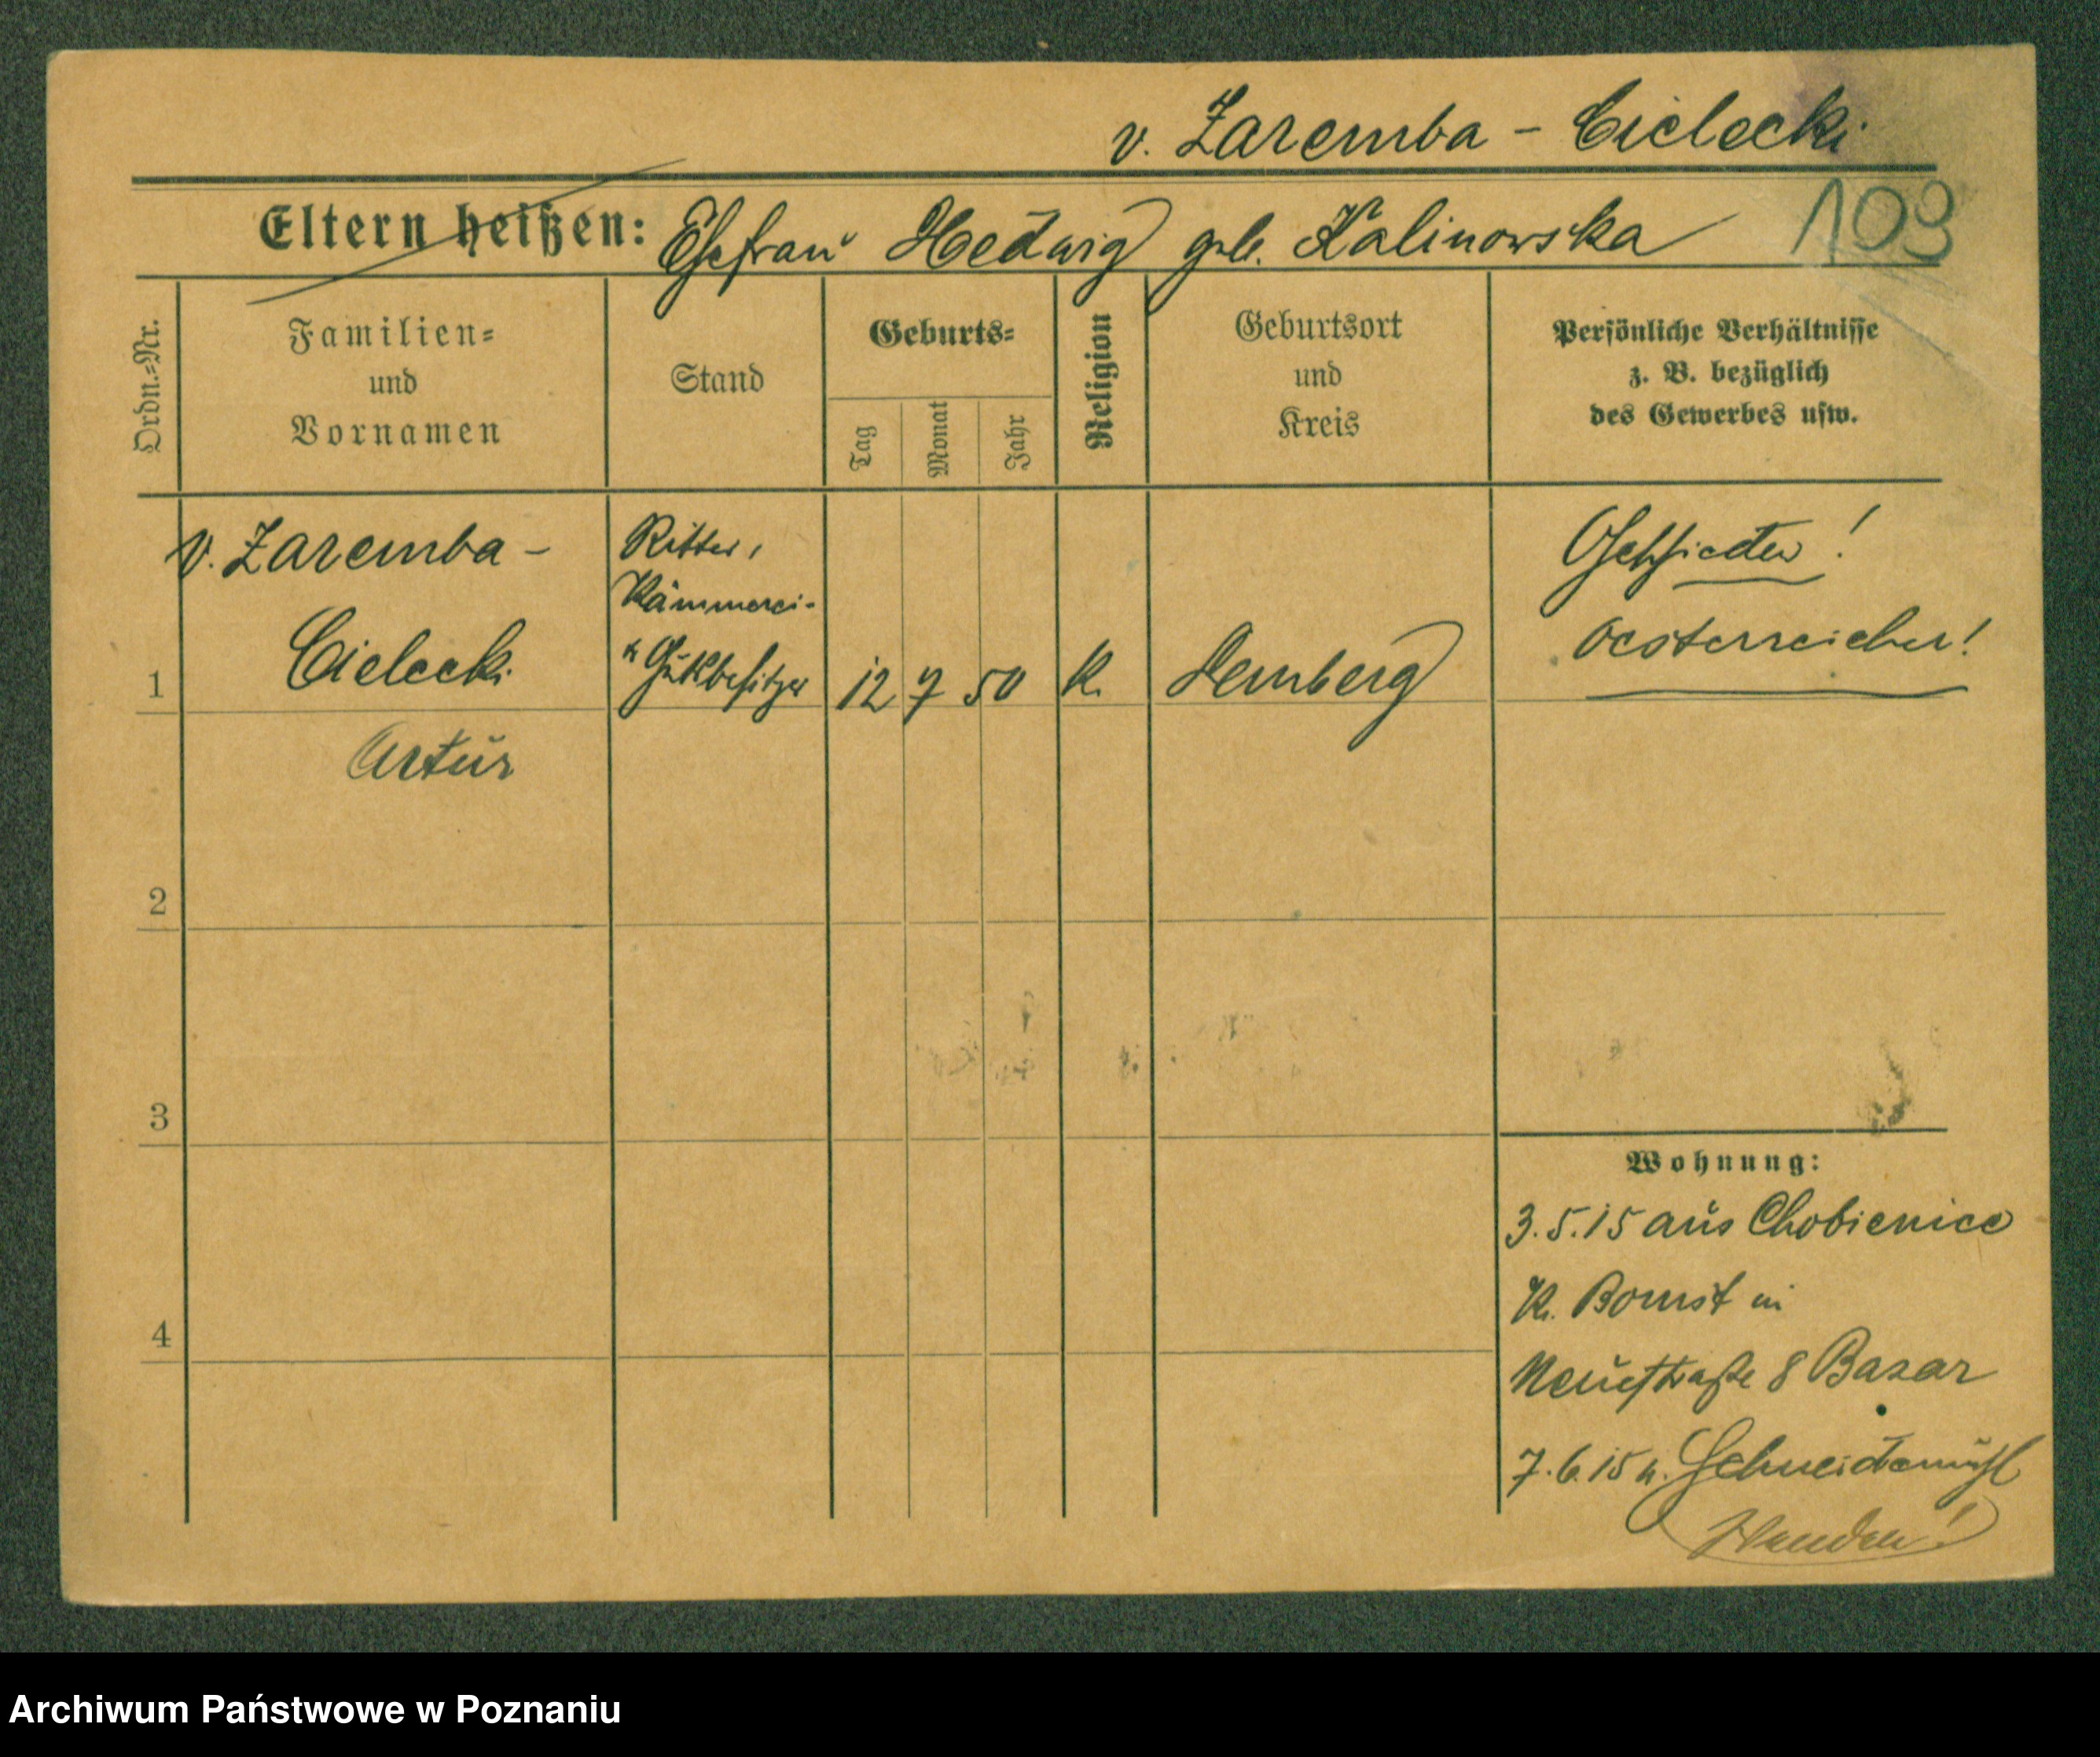 v. Zaremba - Cielecki
Eltern heißen: Ehefrau Hedwig geb. Kalinowska
109
Ordn.=Nr.
Familien=
und
Vornamen
Stand
Geburts=
Tag
Monat
Jahr
Religion
Geburtsort
und
Kreis
Persönliche Verhältnisse
z. B. bezüglich
des Gewerbes usw.
1
v. Zaremba -
Cielecki
Artur
Ritter,
Kämmerei-
u Gutsbesitzer
12 7 50
K.
Lemberg
!
Oesterreicher!
2
3
4
Wohnung:
3.5.15 aus Chobienice
Kr. Bomst in
Neuestraße 8 Bazar
7.6.15 n. Schneidemühl
Wenden!
Archiwum Państwowe w Poznaniu